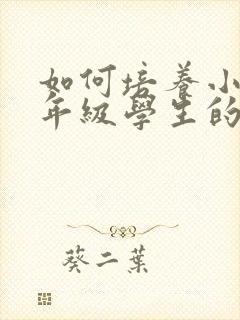 如何培养小
年級學生的
葵二葉